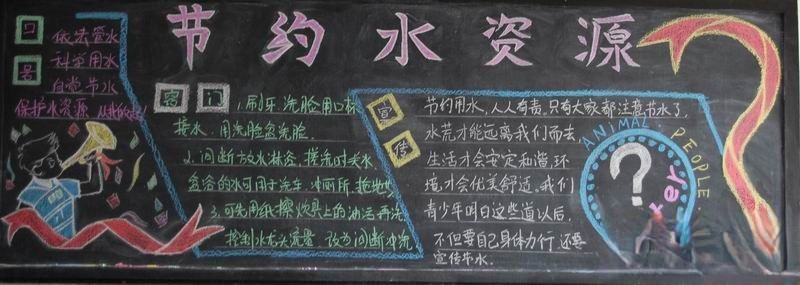 节约水资源
口号
依法管水
科学用水
自觉节水
保护水资源
窍门
1.刷牙洗脸用口杯
接水,用洗脸盆洗脸.
2.间断放水淋浴,搓洗时关水.
盆浴的水可用于洗车,冲厕所,拖地
3.可先用纸擦炊具上的油污再洗
控制水龙头流量,改为间断冲洗
宣传
节约用水,人人有责,只有大家都注意节水了,
水荒才能远离我们而去,
生活才会安定和谐,环
境才会优美舒适.我们
青少年明白这些道以后,
不但要自己身体力行,还要
宣传节水.
ANIMAL. PEOPLE.
?
ter